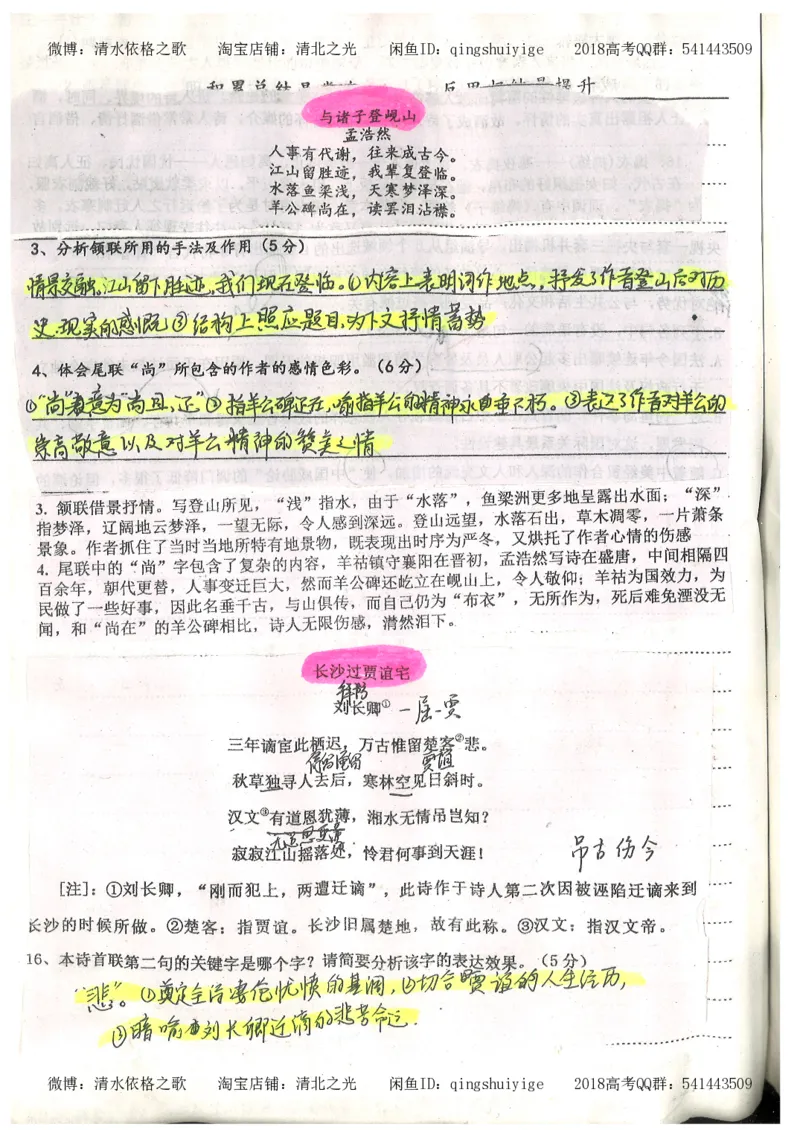 微博：清水依格之歌 淘宝店铺：清北之光 闲鱼ID：qingshuiyige 2018高考QQ群：541443509
与诸子登岘山
孟浩然
人事有代谢，往来成古今。
江山留胜迹，我辈复登临。
水落鱼梁浅，天寒梦泽深。
羊公碑尚在，读罢泪沾襟。
3、分析颔联所用的手法及作用（5分）
情景交融。江山留下胜迹，我们现在登临。①内容上表明词作地点，抒发了作者登山后对历
史、现实的感慨②结构上照应题目，为下文抒情蓄势
4、体会尾联“尚”所包含的作者的感情色彩。（6分）
①“尚”意为“尚且、还”②指羊公碑还在，喻指羊公的精神永垂不朽。③表达了作者对羊公的
崇高敬意以及对羊公精神的赞美之情
3. 颔联借景抒情。写登山所见，“浅”指水，由于“水落”，鱼梁洲更多地呈露出水面；“深”
指梦泽，辽阔地云梦泽，一望无际，令人感到深远。登山远望，水落石出，草木凋零，一片萧条
景象。作者抓住了当时当地所特有地景物，既表现出时序为严冬，又烘托了作者心情的伤感
4. 尾联中的“尚”字包含了复杂的内容，羊祜镇守襄阳在晋初，孟浩然写诗在盛唐，中间相隔四
百余年，朝代更替，人事变迁巨大，然而羊公碑还屹立在岘山上，令人敬仰；羊祜为国效力，为
民做了一些好事，因此名垂千古，与山俱传，而自己仍为“布衣”，无所作为，死后难免湮没无
闻，和“尚在”的羊公碑相比，诗人无限伤感，潸然泪下。
长沙过贾谊宅
拜访
刘长卿① 一屈一贾
三年谪宦此栖迟，万古惟留楚客②悲。
贾谊
秋草独寻人去后，寒林空见日斜时。
汉文③有道恩犹薄，湘水无情吊岂知？
寂寂江山摇落处，怜君何事到天涯！
吊古伤今
[注]：①刘长卿，“刚而犯上，两遭迁谪”，此诗作于诗人第二次因被诬陷迁谪来到
长沙的时候所做。②楚客：指贾谊。长沙旧属楚地，故有此称。③汉文：指汉文帝。
16、本诗首联第二句的关键字是哪个字？请简要分析该字的表达效果。（5分）
“悲”。①奠定全诗忧愤的基调，②切合贾谊的人生经历，
③暗喻刘长卿迁谪的悲苦命运.
微博：清水依格之歌 淘宝店铺：清北之光 闲鱼ID：qingshuiyige 2018高考QQ群：541443509